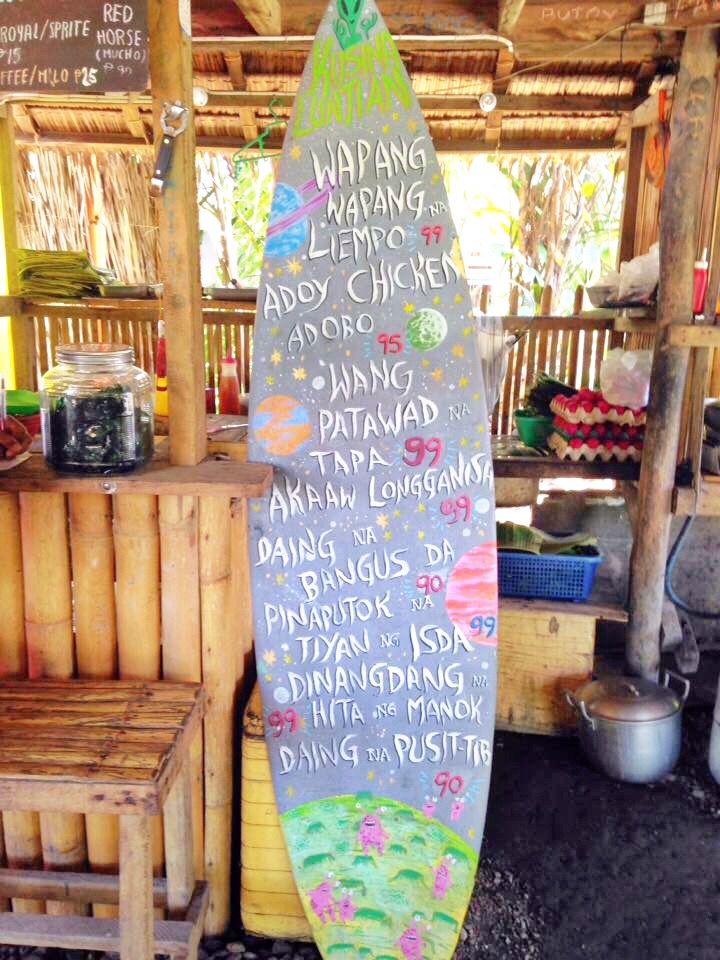 ROYAL/SPRITE
₱15
RED
HORSE
(MUCHO)
₱90
COFFEE/MILO ₱25
KUSINA
LUNTIAN
WAPANG
WAPANG NA
LIEMPO 99
ADOY CHICKEN
ADOBO 95
WANG
PATAWAD NA
TAPA 99
AKAAW LONGGANISA
99
DAING NA
BANGUS DA
90
PINAPUTOK NA
99
TIYAN NG ISDA
DINANGDANG NA
99 HITA NG MANOK
DAING NA PUSIT-TIB
90